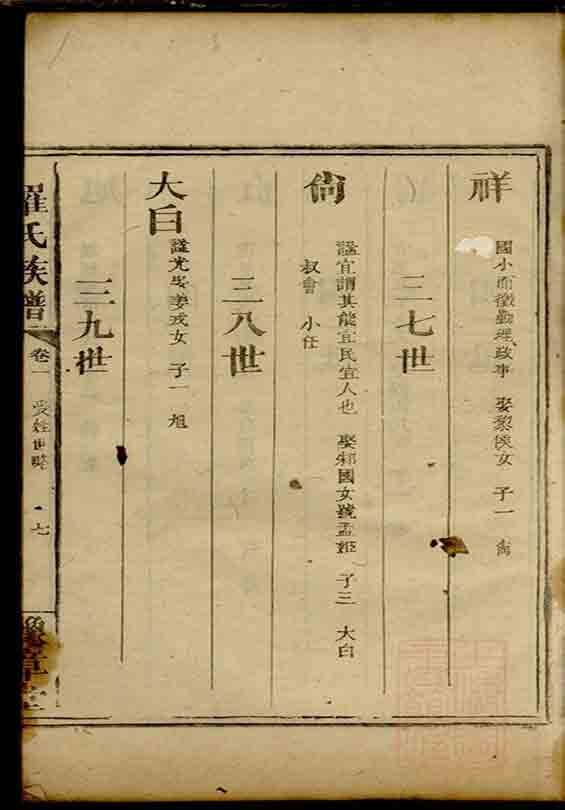 祥
國小而徵勤理政事 娶黎侯女 子一 尙
三七世
尙
諡宜謂其能宜民宜人也 娶邾國女號孟姬 子三 大白
叔會 小任
三八世
大白
諡尤 娶姜戎女 子一 旭
三九世
羅氏族譜
卷二 受姓世略 七
豫章堂